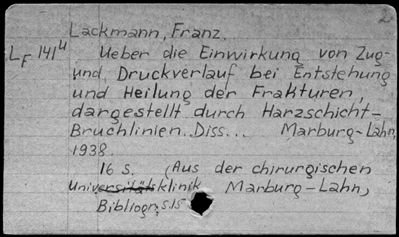 2
Lackmann, Franz.
LF 141u Ueber die Einwirkung von Zug-
und Druckverlauf bei Entstehung
und Heilung der Frakturen,
dargestellt durch Harzschicht-
Bruchlinien. Diss... Marburg-Lahn,
1938.
16 S. (Aus der chirurgischen
Universitätsklinik Marburg-Lahn,
Bibliogr. S.15